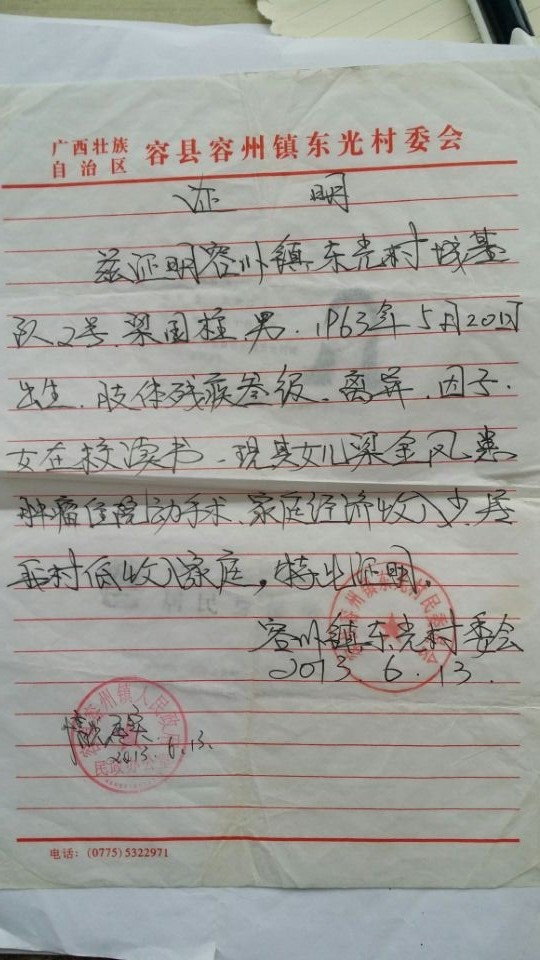 广西壮族
自治区 容县容州镇东光村委会
证 明
兹证明容州镇东光村城基
队2号.梁国桂.男.1963年5月20日
出生.肢体残疾叁级.离异.因子.
女在校读书.现其女儿梁金凤患
肿瘤住院动手术.家庭经济收入少.居
我村低收入家庭,特此证明.
容州镇东光村委会
2013 6.13.
情况属实
2013.6.13.
电话:(0775)5322971